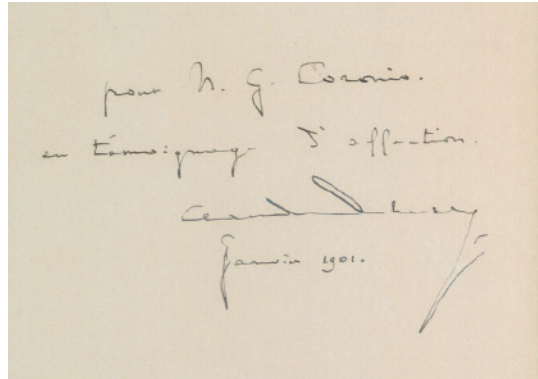 pour N. G. Coronio.
en témoignage d'affection.
Claude Debussy
Janvier 1901.